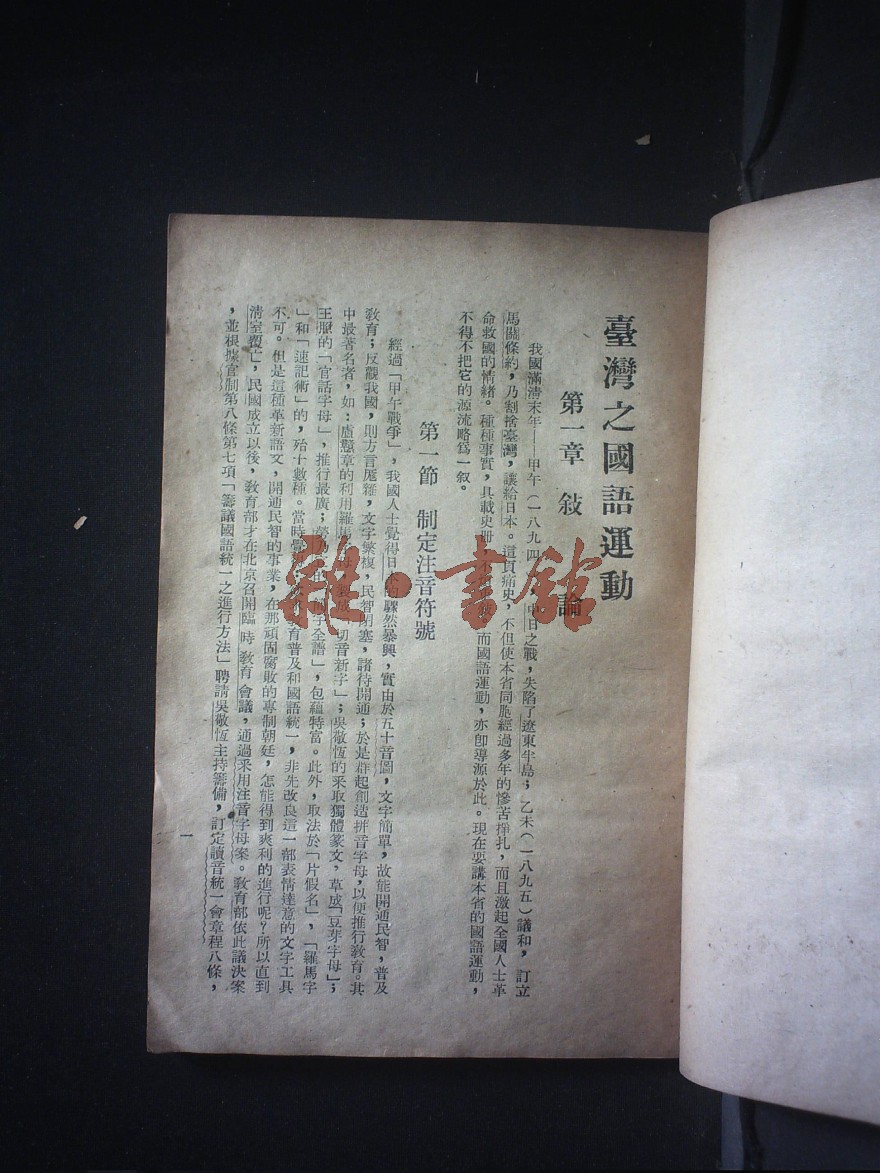 臺灣之國語運動
第一章 敍 論
我國滿清末年——甲午（一八九四 中日之戰，失陷了遼東半島；乙未（一八九五）議和，訂立
馬關條約，乃割捨臺灣，讓給日本。這頁痛史，不但使本省同胞經過多年的慘苦掙扎，而且激起全國人士革
命救國的情緒。種種事實，具載史册，不 而國語運動，亦卽導源於此。現在要講本省的國語運動，
不得不把它的源流略爲一叙。
第一節 制定注音符號
經過「甲午戰爭」，我國人士覺得日本的驟然暴興，實由於五十音圖，文字簡單，故能開通民智，普及
敎育；反觀我國，則方言厖雜，文字繁複，民智閉塞，諸待開通；於是羣起創造拼音字母，以便推行敎育。其
中最著名者，如：盧戇章的利用羅馬 切音新字」；吳敬恆的采取獨體篆文，草成「豆芽字母」；
王照的「官話字母」，推行最廣；勞乃 字全譜」，包蘊特富。此外，取法於「片假名」，「羅馬字
」和「速記術」的，殆十數種。當時 育普及和國語統一，非先改良這一部表情達意的文字工具
不可。但是這種革新語文，開通民智的事業，在那頑固腐敗的專制朝廷，怎能得到爽利的進行呢？所以直到
淸室覆亡，民國成立以後，敎育部才在北京召開臨時敎育會議，通過采用注音字母案。敎育部依此議決案
，並根據官制第八條第七項「籌議國語統一之進行方法」聘請吳敬恆主持籌備，訂定讀音統一會章程八條，
一
雜·書館